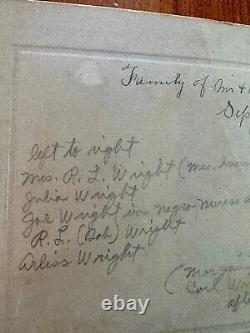 Family of Mr +
Sep
left to right
Mrs. R. L. Wright (Mrs.
Julia Wright
Joe Wright in negro nurse
R. L. (Bob) Wright
Arliss Wright
(Morgan
Carl
aft